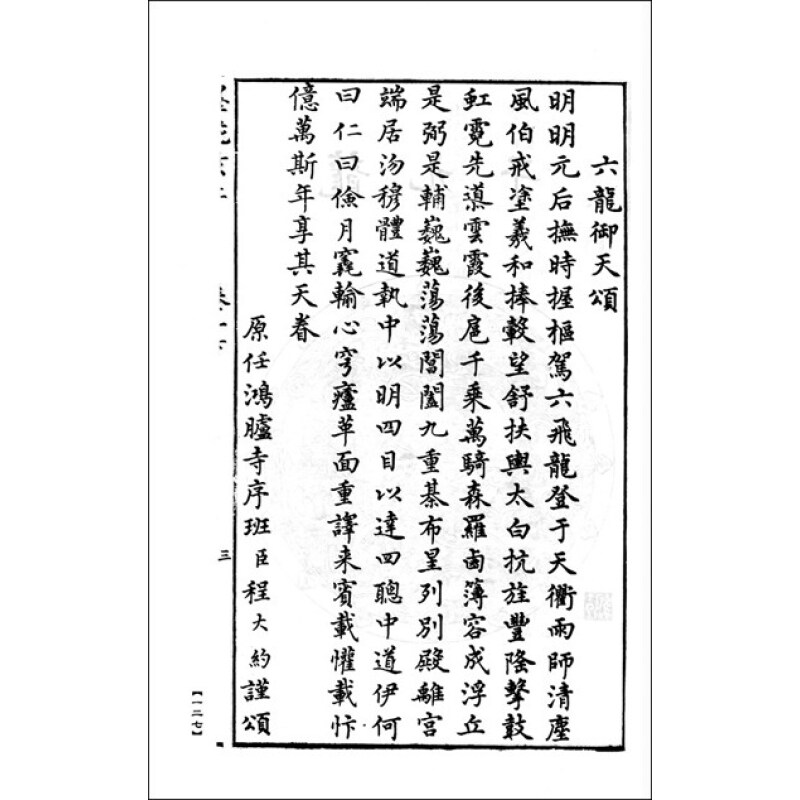 六龍御天頌
明明元后撫時握樞駕六飛龍登于天衢雨師清塵
風伯戒塗羲和捧轂望舒扶輿太白抗旌豐隆擊鼓
虹霓先導雲霞後扈千乘萬騎森羅鹵簿容成浮丘
是弼是輔巍巍蕩蕩閶闔九重棊布星列別殿離宮
端居汤穆體道執中以明四目以達四聰中道伊何
曰仁曰儉月竁輸心穹廬革面重譯来賓載懽載忭
億萬斯年享其天眷
原任鴻臚寺序班臣程大約謹頌
三
【一二七】